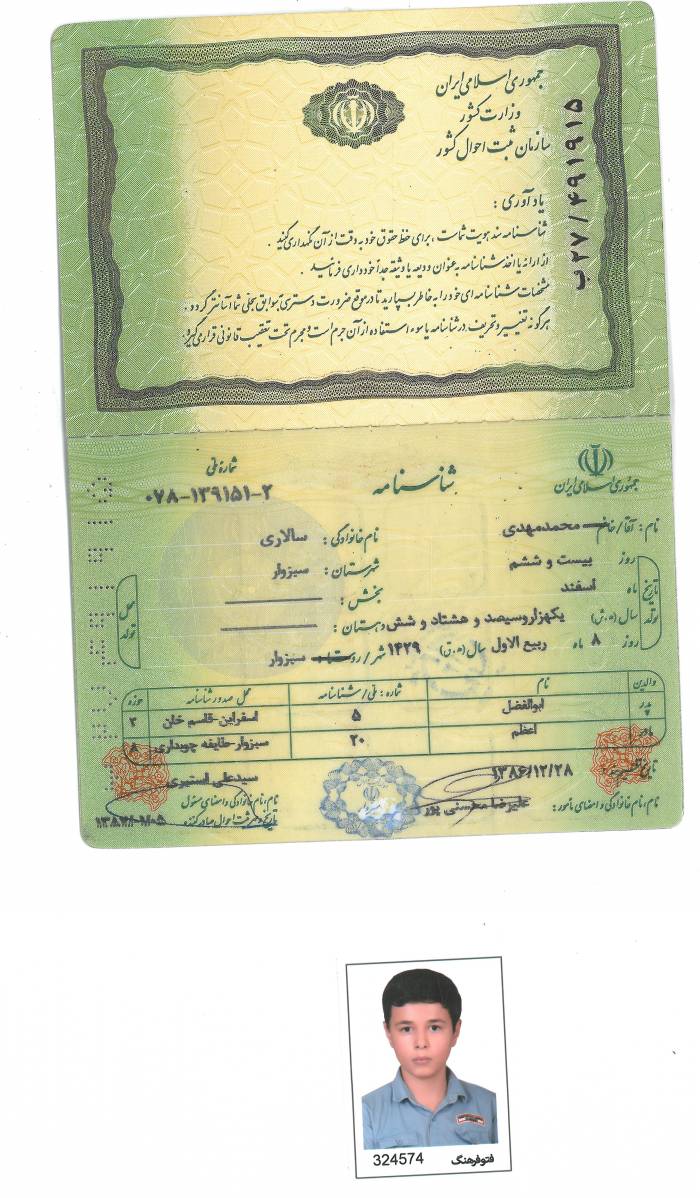 جمهوری اسلامی ایران
وزارت کشور
سازمان ثبت احوال کشور
ب ۲۷/۴۹۱۹۱۵
یادآوری :
شناسنامه سند هویت شماست ، برای حفظ حقوق خود به دقت از آن نگهداری کنید .
از ارائه یا اخذ شناسنامه به عنوان ودیعه یا وثیقه جداً خودداری فرمائید .
مشخصات شناسنامه ای خود را به خاطر بسپارید تا در موقع ضرورت دسترسی به سوابق سجلی شما آسانتر گردد .
هرگونه تغییر و تحریف در شناسنامه یا سوء استفاده از آن جرم است و مجرم تحت تعقیب قانونی قرار می گیرد .
جمهوری اسلامی ایران
شناسنامه
شماره ملی
۰۷۸-۱۳۹۱۵۱-۲
نام: آقا/خانم محمدمهدی
نام خانوادگی : سالاری
تاریخ تولد
روز بیست و ششم
شهرستان : سبزوار
محل تولد
ماه اسفند
بخش :
سال (ه.ش) یکهزاروسیصد و هشتاد و شش
دهستان :
روز ۸ ماه ربیع الاول سال (ه.ق) ۱۴۲۹
شهر/روستا سبزوار
والدین نام شماره : ملی/شناسنامه محل صدور شناسنامه حوزه
پدر ابوالفضل ۵ اسفراین-قاسم خان ۳
مادر اعظم ۲۰ سبزوار-طایفه چوبداری ۸
تاریخ ۱۳۸۶/۱۲/۲۸
سیدعلی استیری
نام، نام خانوادگی و امضای مأمور : علیرضا محسنی پور
نام، نام خانوادگی و امضای مسئول
324574 فتوفرهنگ